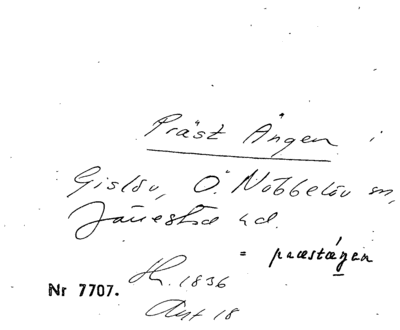 Präst Ängen i
Gislöv, Ö. Nöbbelöv sn,
Järrestad hd.
= præstæ̂ŋen
Hr. 1836
Nr 7707.
Akt 18